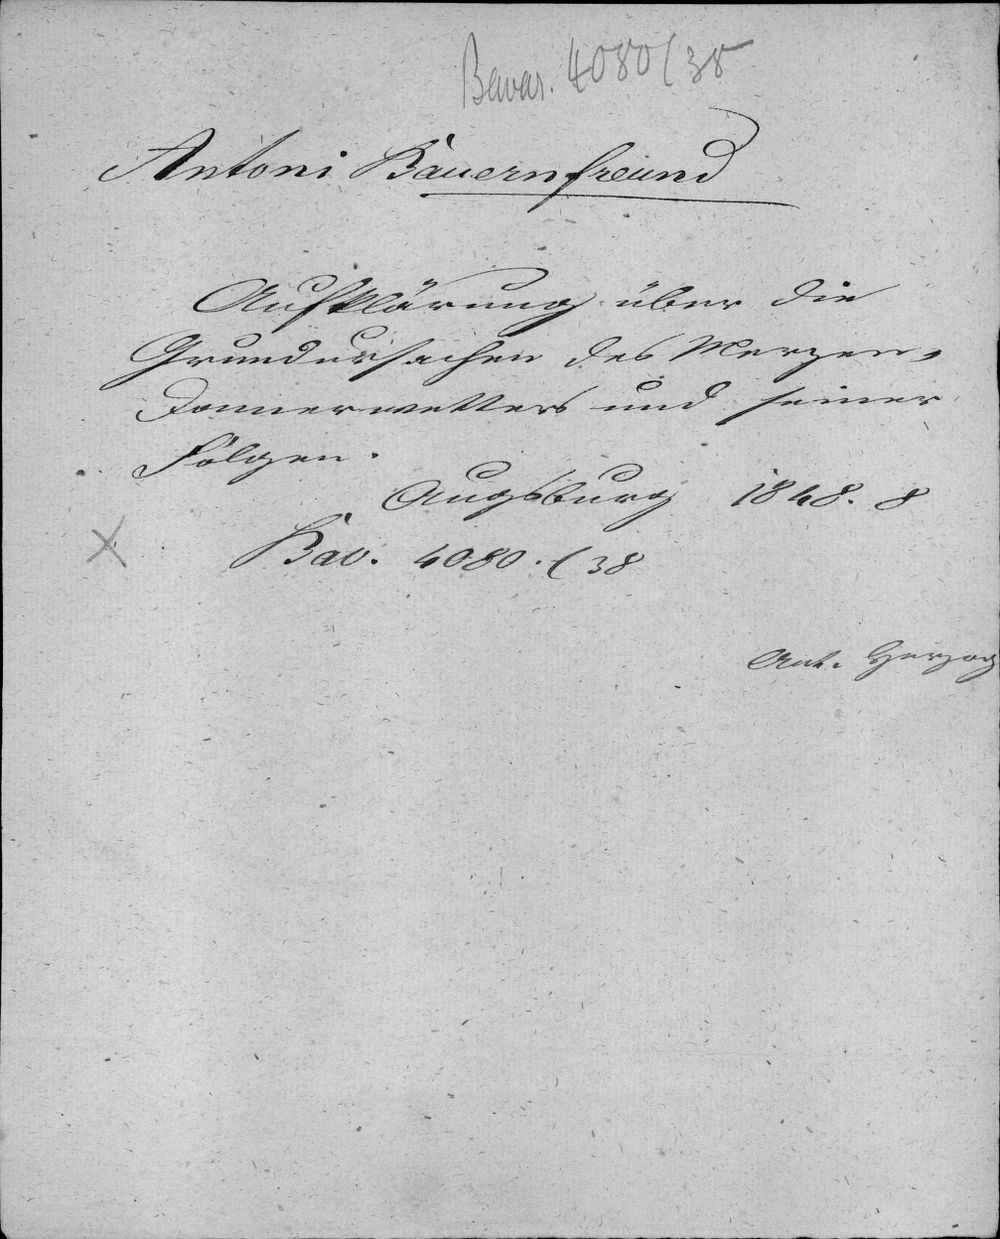 Bavar. 4080 (38
Antoni Bauernfreund
Aufklärung über die
Grundursachen des Merzen-
donnerwetters und seiner
Folgen.
Augsburg 1848. 8
X
Bav. 4080. (38
Ant. Herzog